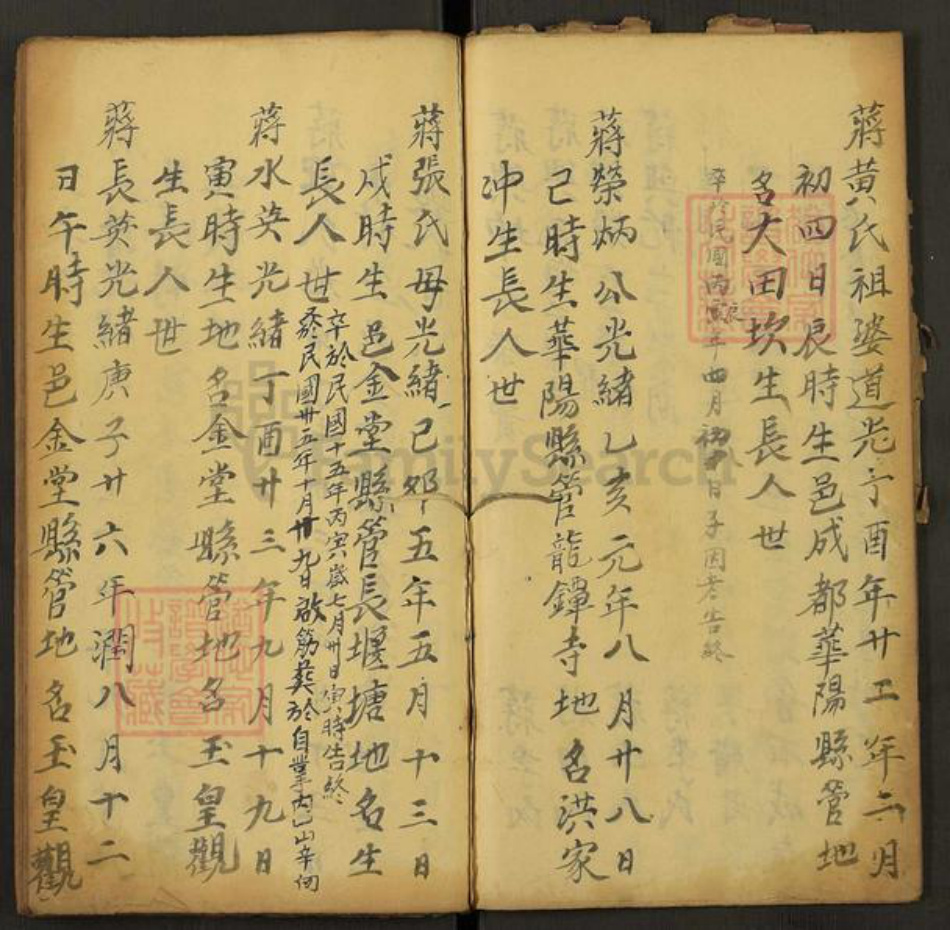 蔣黃氏祖婆道光丁酉年廿工年二月
初四日辰時生邑成都華陽縣管地
名大田坎生長人世
卒於民國丙寅年四月初日子因老告終
蔣榮炳公光緒乙亥元年八月廿八日
己時生華陽縣管龍鐔寺地名洪家
冲生長人世
蔣張氏母光緒己卯五年五月十三日
戌時生邑金堂縣管長堰塘地名生
長人世
卒於民國十五年丙寅歲七月卅日寅時告終
於民國卅五年十月廿九日啟葬於自業內山辛向
蔣水英光緒丁酉廿三年九月十九日
寅時生地名金堂縣管地名玉皇觀
生長人世
蔣長英光緒庚子廿六年潤八月十二
日午時生邑金堂縣管地名玉皇觀
FamilySearch